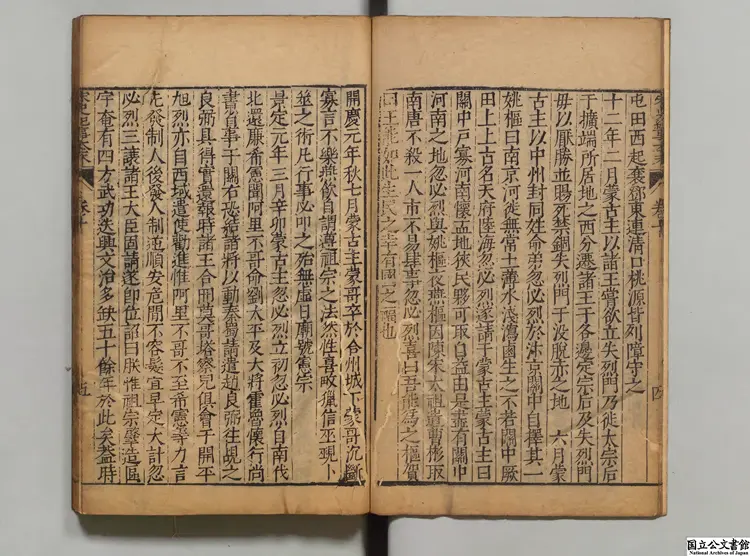 屯田西起襄鄧東連清口桃源皆列障守之
十二年二月蒙古主以諸王嘗欲立失烈門乃徙太宗后
于擴端所居地之西分遷諸王于各邊定宗后及失烈門
母以厭勝並賜死禁錮失烈門于没脫赤之地 六月蒙
古主以中州封同姓命弟忽必烈於汴京關中自擇其一
姚樞曰南京河徙無常土薄水淺瀉鹵生之不若關中厥
田上上古名天府陸海忽必烈遂請于蒙古主蒙古主曰
關中戶寡河南懷孟地狹民夥可取自益由是盡有關中
河南之地忽必烈與姚樞夜燕樞因陳宋太祖遣曹彬取
南唐不殺一人市不易肆事忽必烈喜曰吾能為之樞賀
曰王能如此生民之幸有國之福也
開慶元年秋七月蒙古主蒙哥卒於合州城下蒙哥沉斷
寡言不樂燕飲自謂遵祖宗之法然性喜畋獵信巫覡卜
筮之術凡行事必叩之殆無虛日廟號憲宗
景定元年三月辛卯蒙古主忽必烈立初忽必烈自南伐
北還廉希憲聞阿里不哥命劉太平及大將霍魯懷行尚
書省事于關右恐結諸將以動秦蜀請遣趙良弼往覘之
良弼具得實還報時諸王合丹莫哥塔察兒俱會于開平
旭烈亦自西域遣使勸進惟阿里不哥不至希憲等力言
先發制人後發人制逆順安危間不容髮宜早定大計忽
必烈三讓諸王大臣固請遂即位詔曰朕惟祖宗肇造區
宇奄有四方武功迭興文治多缺五十餘年於此矣蓋時
卷十
五
国立公文書館
National Archives of Japan